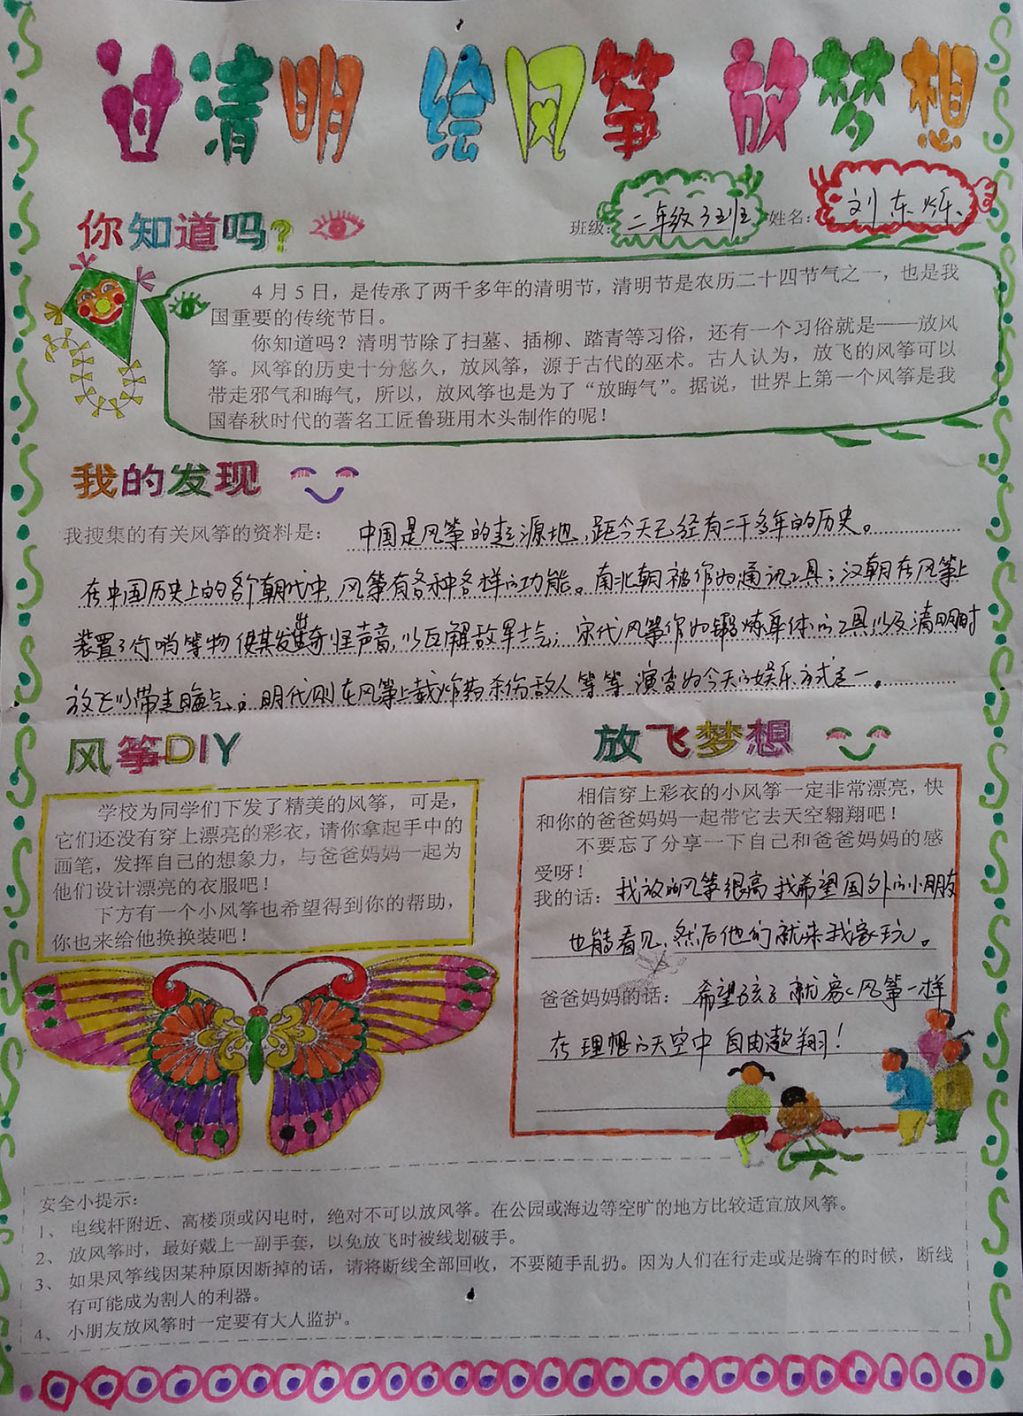 过清明 绘风筝 放梦想
你知道吗?
班级: 二年级3班 姓名: 刘东烁
4月5日，是传承了两千多年的清明节，清明节是农历二十四节气之一，也是我
国重要的传统节日。
你知道吗？清明节除了扫墓、插柳、踏青等习俗，还有一个习俗就是——放风
筝。风筝的历史十分悠久，放风筝，源于古代的巫术。古人认为，放飞的风筝可以
带走邪气和晦气，所以，放风筝也是为了“放晦气”。据说，世界上第一个风筝是我
国春秋时代的著名工匠鲁班用木头制作的呢！
我的发现
我搜集的有关风筝的资料是： 中国是风筝的起源地，距今天已经有二千多年的历史。
在中国历史上的各个朝代中，风筝有各种各样的功能。南北朝被作为通讯工具；汉朝在风筝上
装置了竹哨等物使其发出奇怪声音，以瓦解敌军士气；宋代风筝作为锻炼身体的工具以及清明时
放飞以带走晦气；明代则在风筝上载炸药杀伤敌人等等，演变为今天的娱乐方式之一。
风筝DIY
学校为同学们下发了精美的风筝，可是，
它们还没有穿上漂亮的彩衣，请你拿起手中的
画笔，发挥自己的想象力，与爸爸妈妈一起为
他们设计漂亮的衣服吧！
下方有一个小风筝也希望得到你的帮助，
你也来给他换换装吧！
放飞梦想
相信穿上彩衣的小风筝一定非常漂亮，快
和你的爸爸妈妈一起带它去天空翱翔吧！
不要忘了分享一下自己和爸爸妈妈的感
受呀！
我的话：我放的风筝很高 我希望国外的小朋友
也能看见，然后他们就来我家玩。
爸爸妈妈的话：希望孩子就像风筝一样
在理想的天空中自由遨翔！
安全小提示：
1、 电线杆附近、高楼顶或闪电时，绝对不可以放风筝。在公园或海边等空旷的地方比较适宜放风筝。
2、 放风筝时，最好戴上一副手套，以免放飞时被线划破手。
3、 如果风筝线因某种原因断掉的话，请将断线全部回收，不要随手乱扔。因为人们在行走或是骑车的时候，断线
有可能成为割人的利器。
4、 小朋友放风筝时一定要有大人监护。